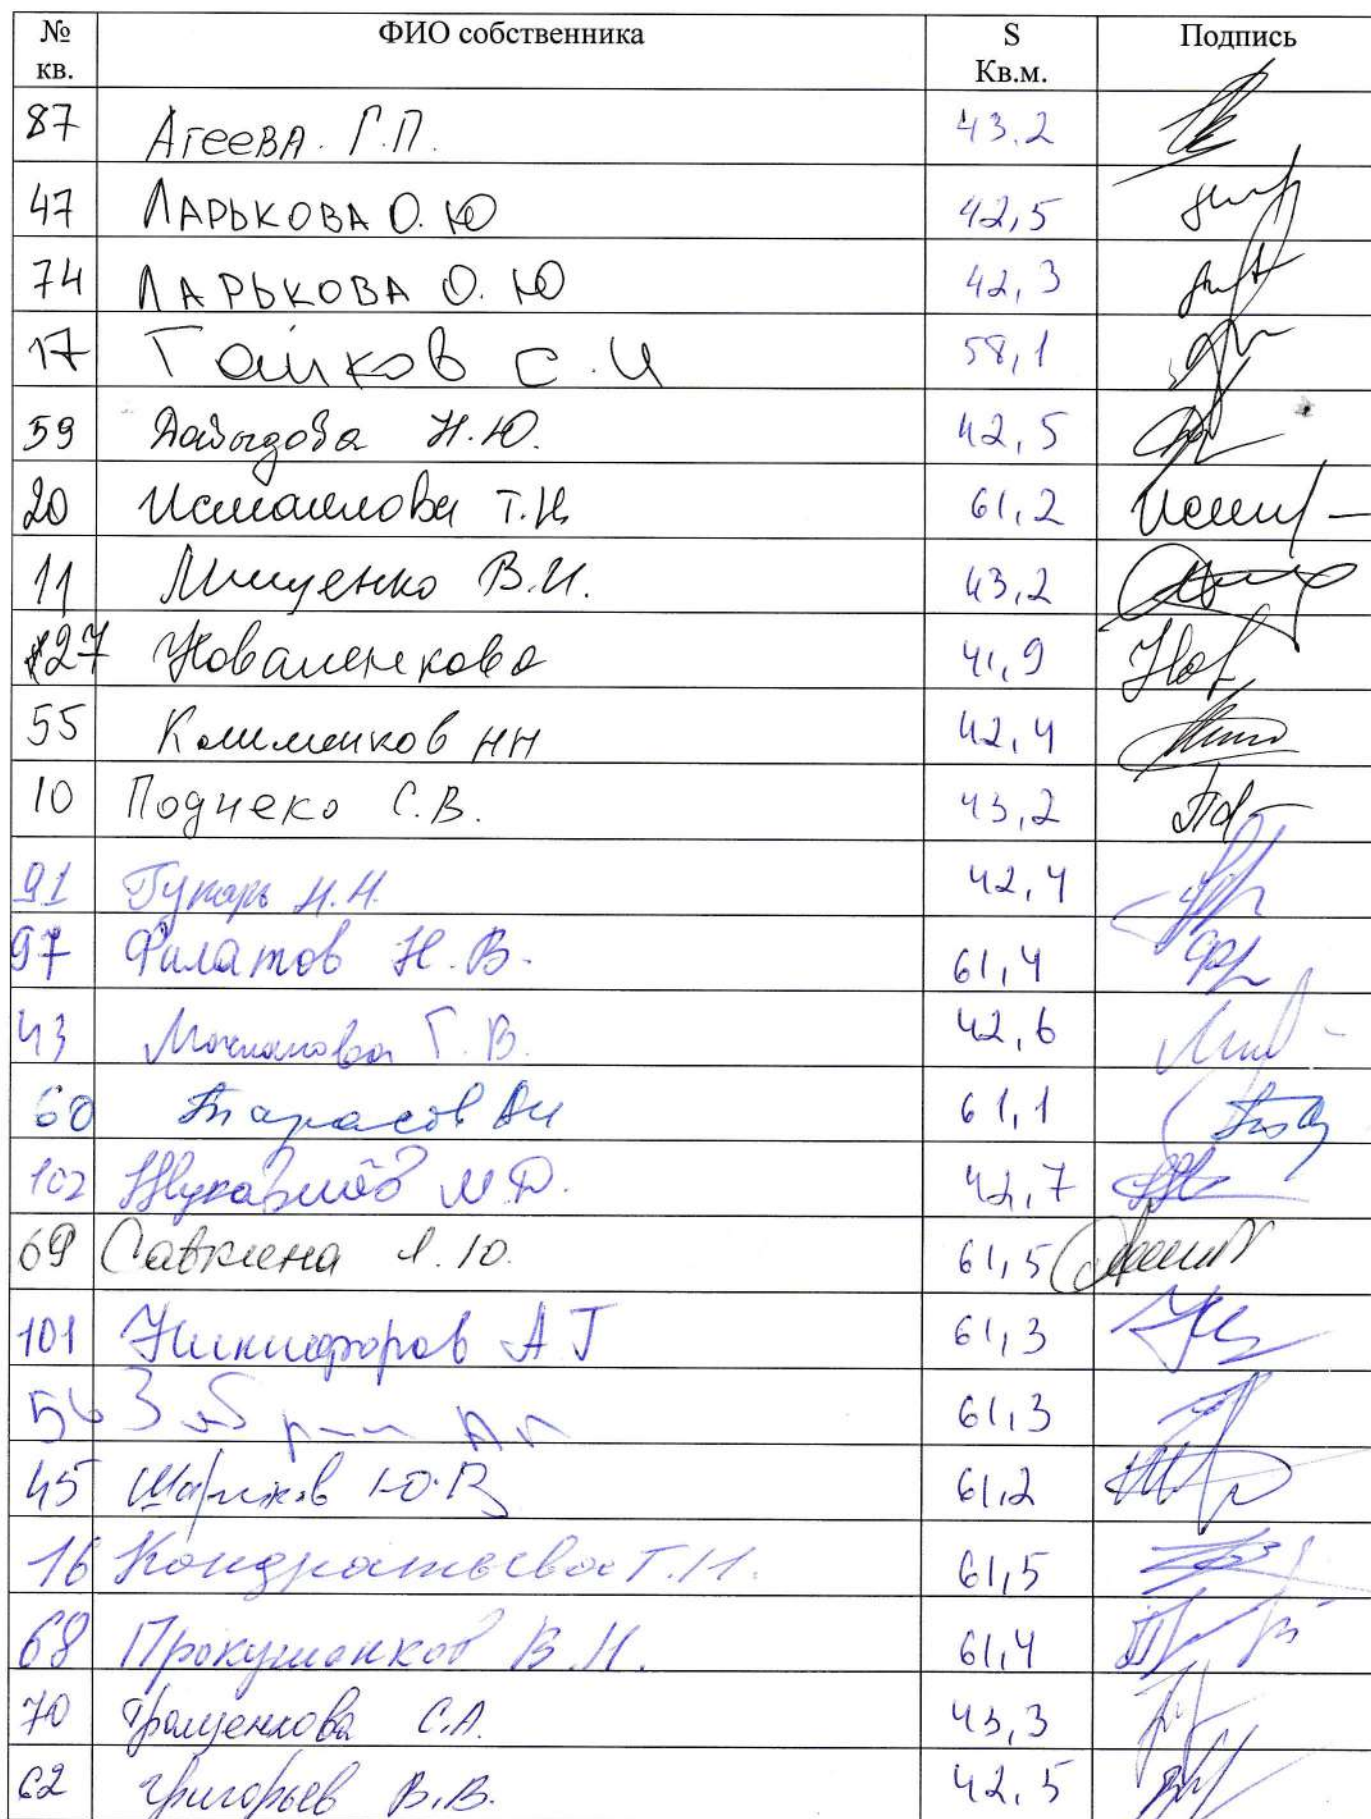 № кв. ФИО собственника S Кв.м. Подпись
87 Агеева. Г.П. 43,2
47 ЛАРЬКОВА О.Ю 42,5
74 ЛАРЬКОВА О.Ю 42,3
17 Гайков С.И 58,1
59 Давыдова Н.Ю. 42,5
20 Исмаилова Т.Н. 61,2
11 Мищенко В.И. 43,2
27 Коваленкова 41,9
55 Клименков НН 42,4
10 Поднеко С.В. 43,2
91 Н.Н. 42,4
97 Филатов Н.В. 61,4
43 Г.В. 42,6
60 Тарасов АИ 61,1
102 М.Д. 42,7
69 Савкина Л.Ю. 61,5
101 Никифоров А Г 61,3
56 61,3
45 Ю.В 61,2
16 Кондратьева Т.И. 61,5
68 Прокушенков В.И. 61,4
70 Гращенкова С.А. 43,3
62 Григорьев В.В. 42,5